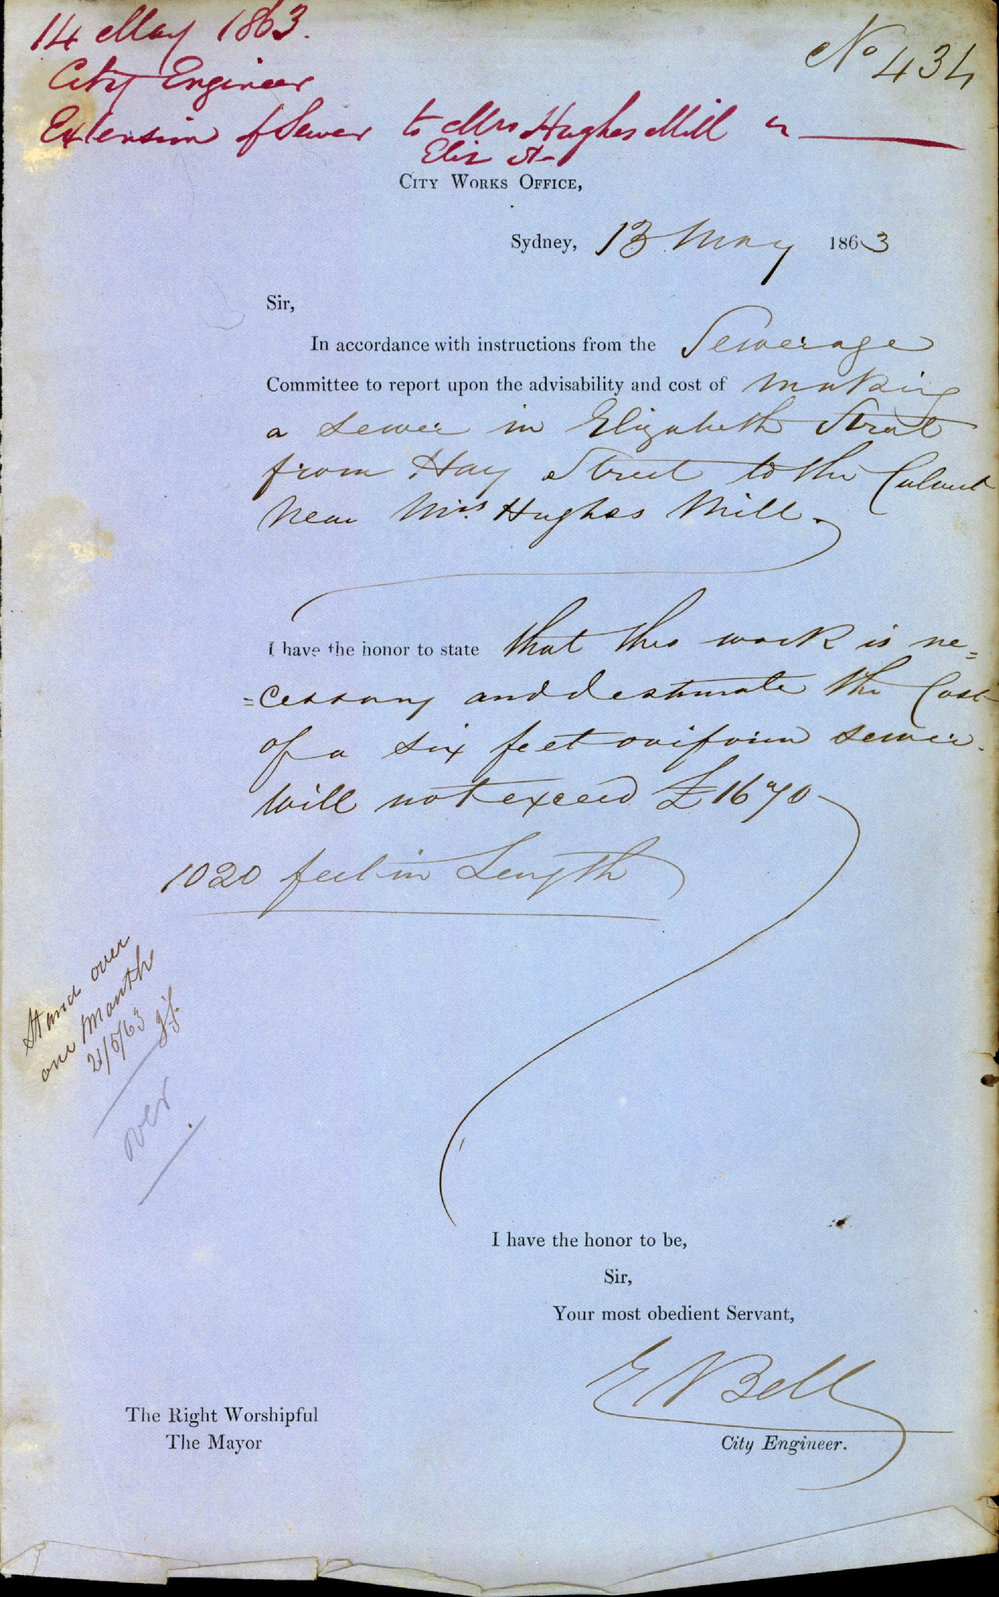 14 May 1863.
No 434
City Engineer
Extension of Sewer to Mrs Hughes Mill in
Eliz St
City Works Office,
Sydney, 13 May 1863
Sir,
In accordance with instructions from the Sewerage
Committee to report upon the advisability and cost of making
a sewer in Elizabeth Street
from Hay Street to the Culvert
near Mrs Hughes Mill.
I have the honor to state that this work is ne=
=cessary and I estimate the Cost
of a six feet oviform sewer
will not exceed £1670
1020 feet in Length
Stand over
one Month
21/5/63
over
I have the honor to be,
Sir,
Your most obedient Servant,
E Bell
City Engineer.
The Right Worshipful
The Mayor